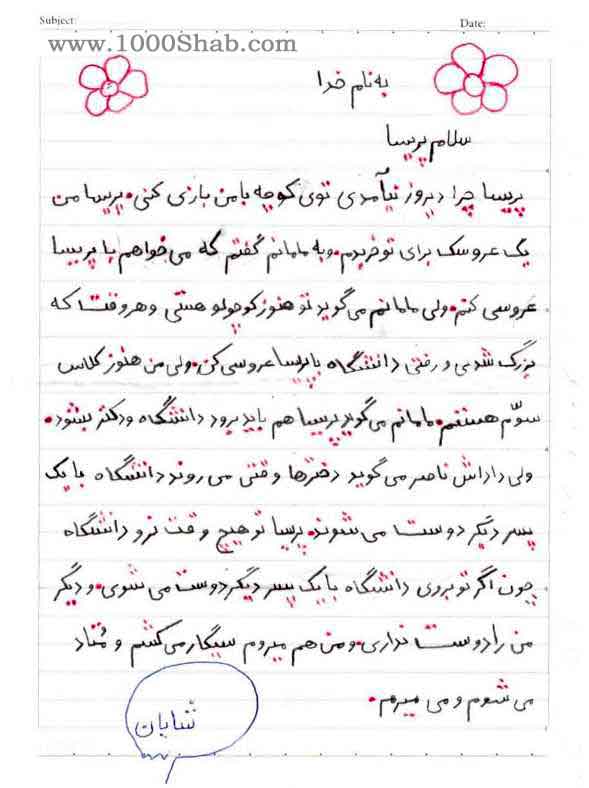 Subject:
Date:
www.1000Shab.com
به نام خدا
سلام پریسا
پریسا چرا دیروز نیآمدی توی کوچه با من بازی کنی. پریسا من
یک عروسک برای تو خریدم. و به مامانم گفتم که می خواهم با پریسا
عروسی کنم. ولی مامانم می گوید تو هنوز کوچولو هستی و هر وقت که
بزرگ شدی و رفتی دانشگاه با پریسا عروسی کن. ولی من هنوز کلاس
سوّم هستم. مامانم می گوید پریسا هم باید برود دانشگاه و دکتر بشود.
ولی داداش ناصر می گوید دخترها وقتی می روند دانشگاه با یک
پسر دیگر دوست می شوند. پریسا تو هیچ وقت نرو دانشگاه
چون اگر تو بروی دانشگاه با یک پسر دیگر دوست می شوی. و دیگر
من را دوست نداری. و من هم میروم سیگار می کشم و مُتاد
می شوم و می میرم.